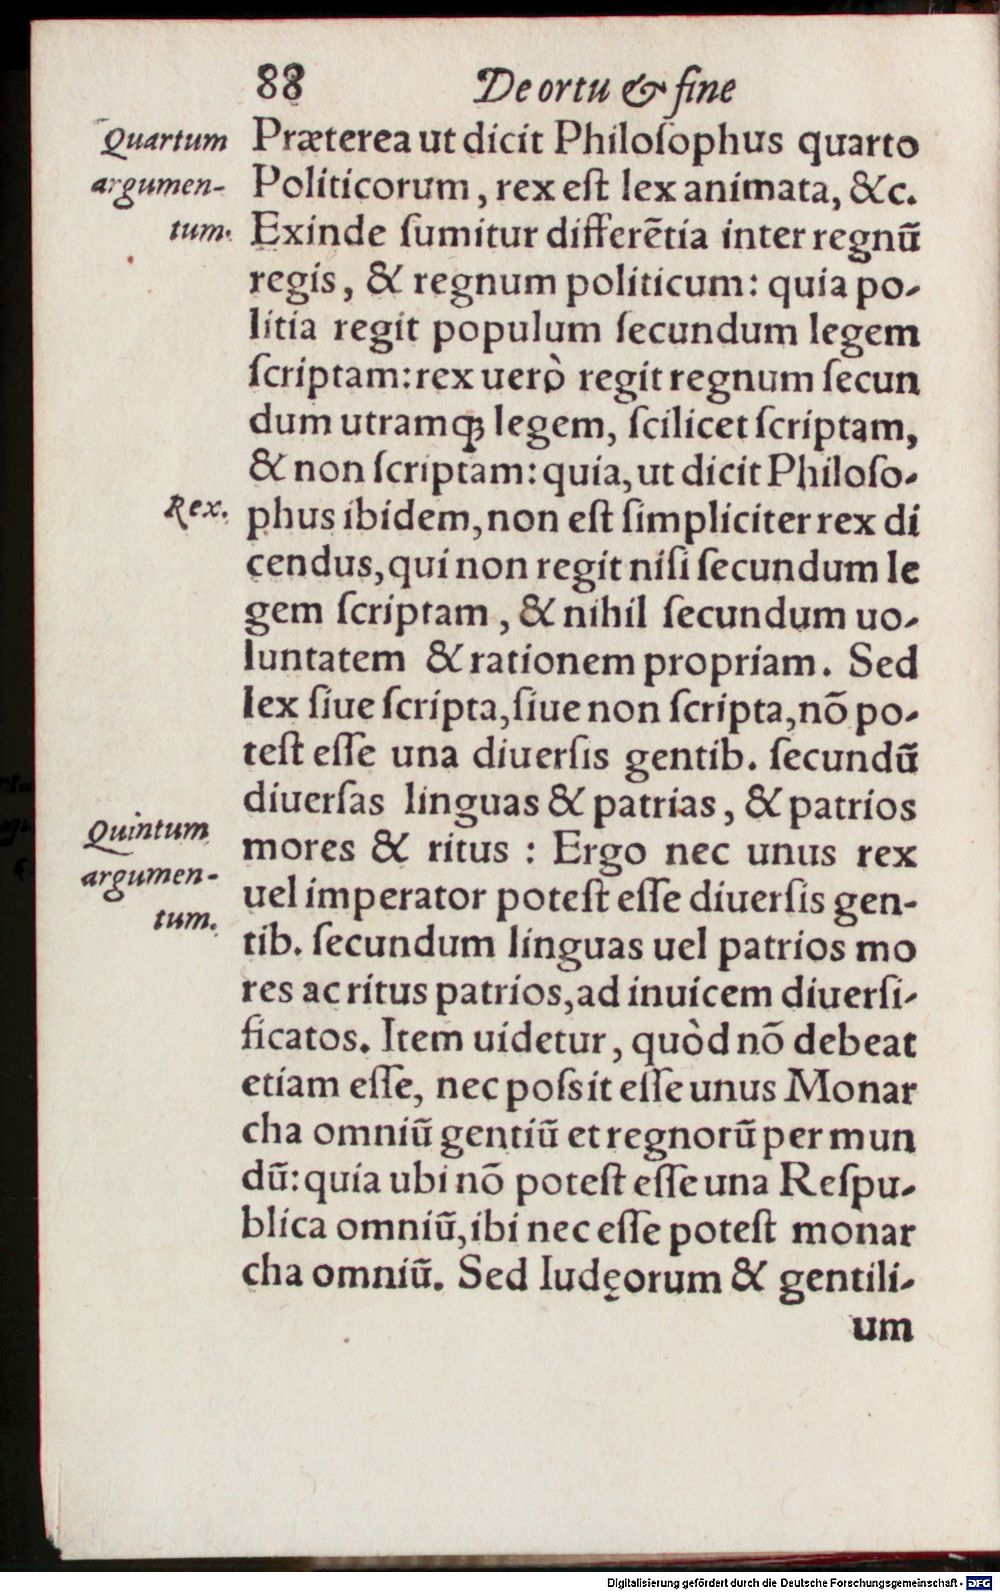 88 De ortu & fine
Quartum
argumen-
tum.
Præterea ut dicit Philoſophus quarto
Politicorum, rex eſt lex animata, &c.
Exinde ſumitur differẽtia inter regnũ
regis, & regnum politicum: quia po-
litia regit populum ſecundum legem
ſcriptam: rex uerò regit regnum ſecun
dum utramqꝫ legem, ſcilicet ſcriptam,
& non ſcriptam: quia, ut dicit Philoſo-
Rex.
phus ibidem, non eſt ſimpliciter rex di
cendus, qui non regit niſi ſecundum le
gem ſcriptam, & nihil ſecundum uo-
luntatem & rationem propriam. Sed
lex ſiue ſcripta, ſiue non ſcripta, nõ po-
teſt eſſe una diuerſis gentib. ſecundũ
diuerſas linguas & patrias, & patrios
Quintum
argumen-
tum.
mores & ritus : Ergo nec unus rex
uel imperator poteſt eſſe diuerſis gen-
tib. ſecundum linguas uel patrios mo
res ac ritus patrios, ad inuicem diuerſi-
ficatos. Item uidetur, quòd nõ debeat
etiam eſſe, nec poſsit eſſe unus Monar
cha omniũ gentiũ et regnorũ per mun
dũ: quia ubi nõ poteſt eſſe una Reſpu-
blica omniũ, ibi nec eſſe poteſt monar
cha omniũ. Sed Iudęorum & gentili-
um
Digitalisierung gefördert durch die Deutsche Forschungsgemeinschaft - DFG